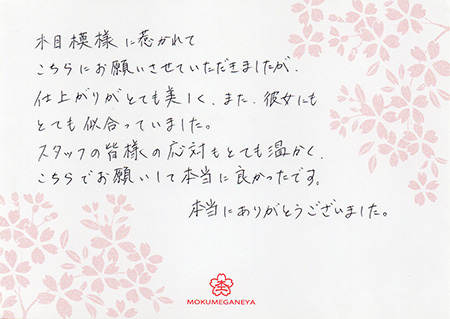 木目模様に惹かれて
こちらにお願いさせていただきましたが、
仕上がりがとても美しく、また、彼女にも
とても似合っていました。
スタッフの皆様の応対もとても温かく、
こちらでお願いして本当に良かったです。
本当にありがとうございました。
MOKUMEGANEYA